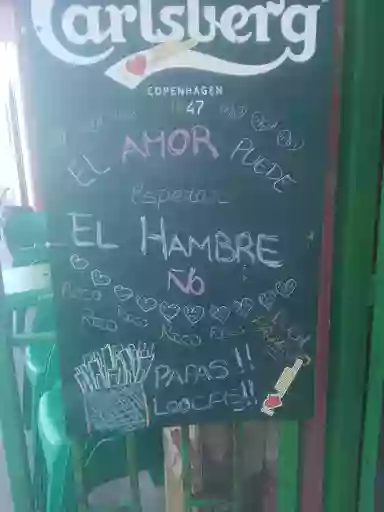 Carlsberg
COPENHAGEN
1847
EL AMOR PUEDE
esperar
EL HAMBRE
NO
Roco Roco Roco Roco Roco
PAPAS!!
LOOCAS!!